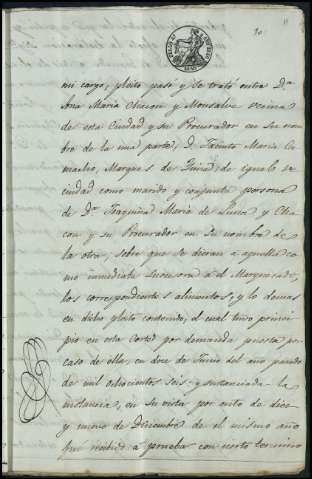 mi cargo, pleito pasó y se trató entre D.ª
Ana Maria Chacon y Monsalve vecina
de esta Ciudad y su Procurador en su nom
bre de la una parte, D. Jacinto Maria Ca
macho, Marques de de igual ve
cindad como marido y conjunta persona
de D.ª Joaquina Maria de y Cha
con y su Procurador en su nombre de
la otra, sobre que se dieran a aquella co
mo inmediata Sucesora a el Mayorazgo,
los correspondientes alimentos, y lo demas
en dicho pleito contenido, el cual tuvo princi
pio en esta Corte por demanda puesta por
caso de ella, en doce de Junio del año pasado
de mil ochocientos seis, y sustanciada la
instancia, en su vista por auto de diez
y nueve de Diciembre de el mismo año
que recibido a prueba con cierto termino